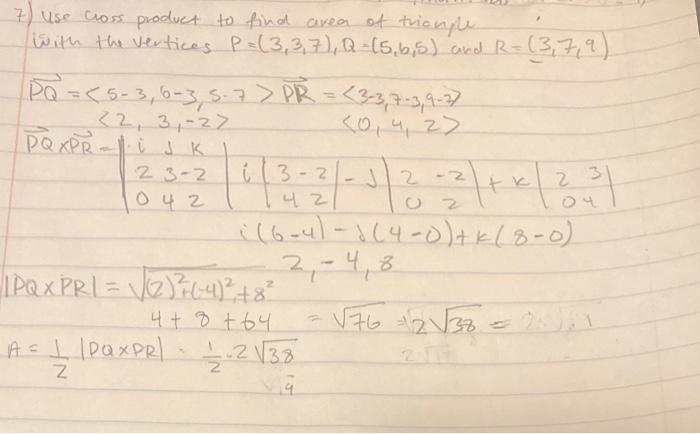 7) Use cross product to find area of triangle
with the vertices P=(3,3,7), Q=(5,6,5) and R=(3,7,9)
PQ = <5-3, 6-3, 5-7> PR = <3-3,7-3,9-7>
<2, 3,-2> <0, 4, 2>
PQ x PR = | i J K | i | 3 -2 | - J | 2 -2 | + K | 2 3 |
| 2 3 -2 | | 4 2 | | 0 2 | | 0 4 |
| 0 4 2 |
i(6-4) - J(4-0) + K(8-0)
2, -4, 8
|PQ x PR| = √(2)²+(-4)²+8²
4 + 8 + 64 = √76 = 2√38 =
A = 1/2 |PQ x PR| = 1/2 · 2√38